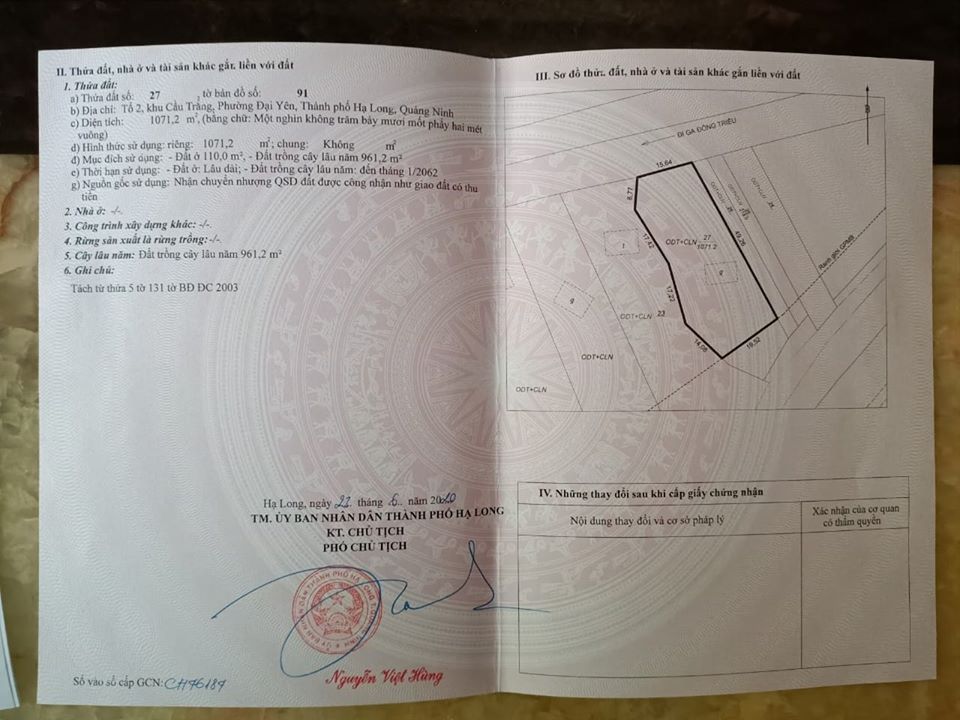 II. Thửa đất, nhà ở và tài sản khác gắn liền với đất
1. Thửa đất:
a) Thửa đất số: 27 , tờ bản đồ số: 91
b) Địa chỉ: Tổ 2, khu Cầu Trắng, Phường Đại Yên, Thành phố Hạ Long, Quảng Ninh
c) Diện tích: 1071,2 m², (bằng chữ: Một nghìn không trăm bảy mươi mốt phẩy hai mét
vuông)
d) Hình thức sử dụng: riêng: 1071,2 m²; chung: Không m²
đ) Mục đích sử dụng: - Đất ở 110,0 m², - Đất trồng cây lâu năm 961,2 m²
e) Thời hạn sử dụng: - Đất ở: Lâu dài; - Đất trồng cây lâu năm: đến tháng 1/2062
g) Nguồn gốc sử dụng: Nhận chuyển nhượng QSD đất được công nhận như giao đất có thu
tiền
2. Nhà ở: -/-.
3. Công trình xây dựng khác: -/-.
4. Rừng sản xuất là rừng trồng: -/-.
5. Cây lâu năm: Đất trồng cây lâu năm 961,2 m²
6. Ghi chú:
Tách từ thửa 5 tờ 131 tờ BĐ ĐC 2003
Hạ Long, ngày 23 tháng 6 năm 2020
TM. ỦY BAN NHÂN DÂN THÀNH PHỐ HẠ LONG
KT. CHỦ TỊCH
PHÓ CHỦ TỊCH
Nguyễn Việt Hùng
Số vào sổ cấp GCN: CH76187
III. Sơ đồ thửa đất, nhà ở và tài sản khác gắn liền với đất
B
ĐI GA ĐÔNG TRIỀU
15.64
8.77
17.42
17.22
14.08
19.52
49.26
ODT+CLN 27
1071.2
g
1
g
ODT+CLN 23
ODT+CLN
ODT+CLN
Ranh giới GPMB
IV. Những thay đổi sau khi cấp giấy chứng nhận
Nội dung thay đổi và cơ sở pháp lý
Xác nhận của cơ quan
có thẩm quyền